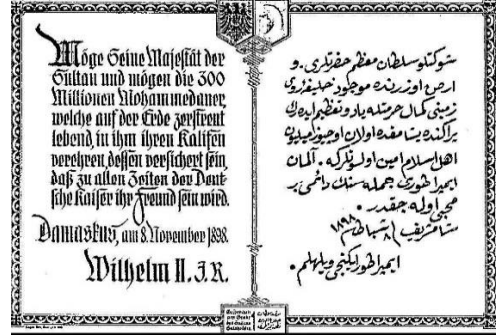 Möge Seine Majestät der
Sultan und mögen die 300
Millionen Mohammedaner,
welche auf der Erde zerstreut
lebend, in ihm ihren Kalifen
verehren, dessen versichert sein,
daß zu allen Zeiten der Deut-
sche Kaiser ihr Freund sein wird.
Damaskus, am 8. November 1898.
Wilhelm II. I.R.
شوكتلو سلطان معظم حضرتلرى و
ارض اوزرنده موجود خليفۀ روى
زمينى كمال حرمتله ياد و تعظيم ايدرك
پراكنده يشامقده اولان اوچيوز ميليون
اهل اسلام امين اولسونلركه ، آلمان
ايمپراطورى جمله سنك دائمى بر
محبى اوله جقدر .
شام شريف ٨ شباط ١٨٩٨
ايمپراطور ايكنجى ويلهلم .